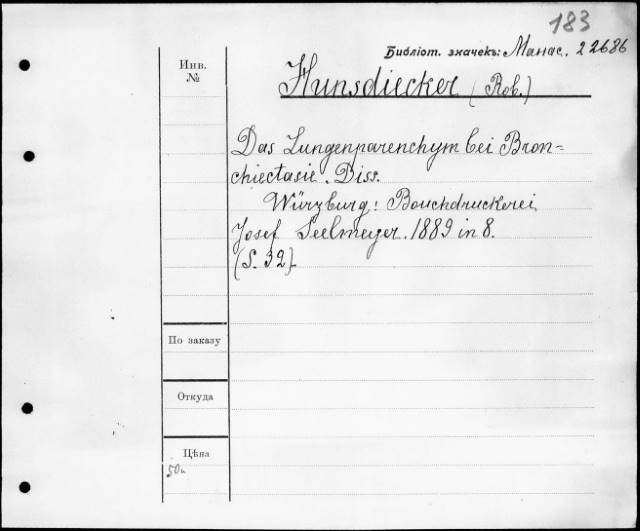 183
Библіот. значекъ: Манас. 22686
Инв.
№
Hunsdiecker (Rob.)
Das Lungenparenchym bei Bron=
chiectasie. Diss.
Würzburg: Bouchdruckerei
Josef Seelmeyer. 1889 in 8.
(S. 32).
По заказу
Откуда
Цѣна
50к